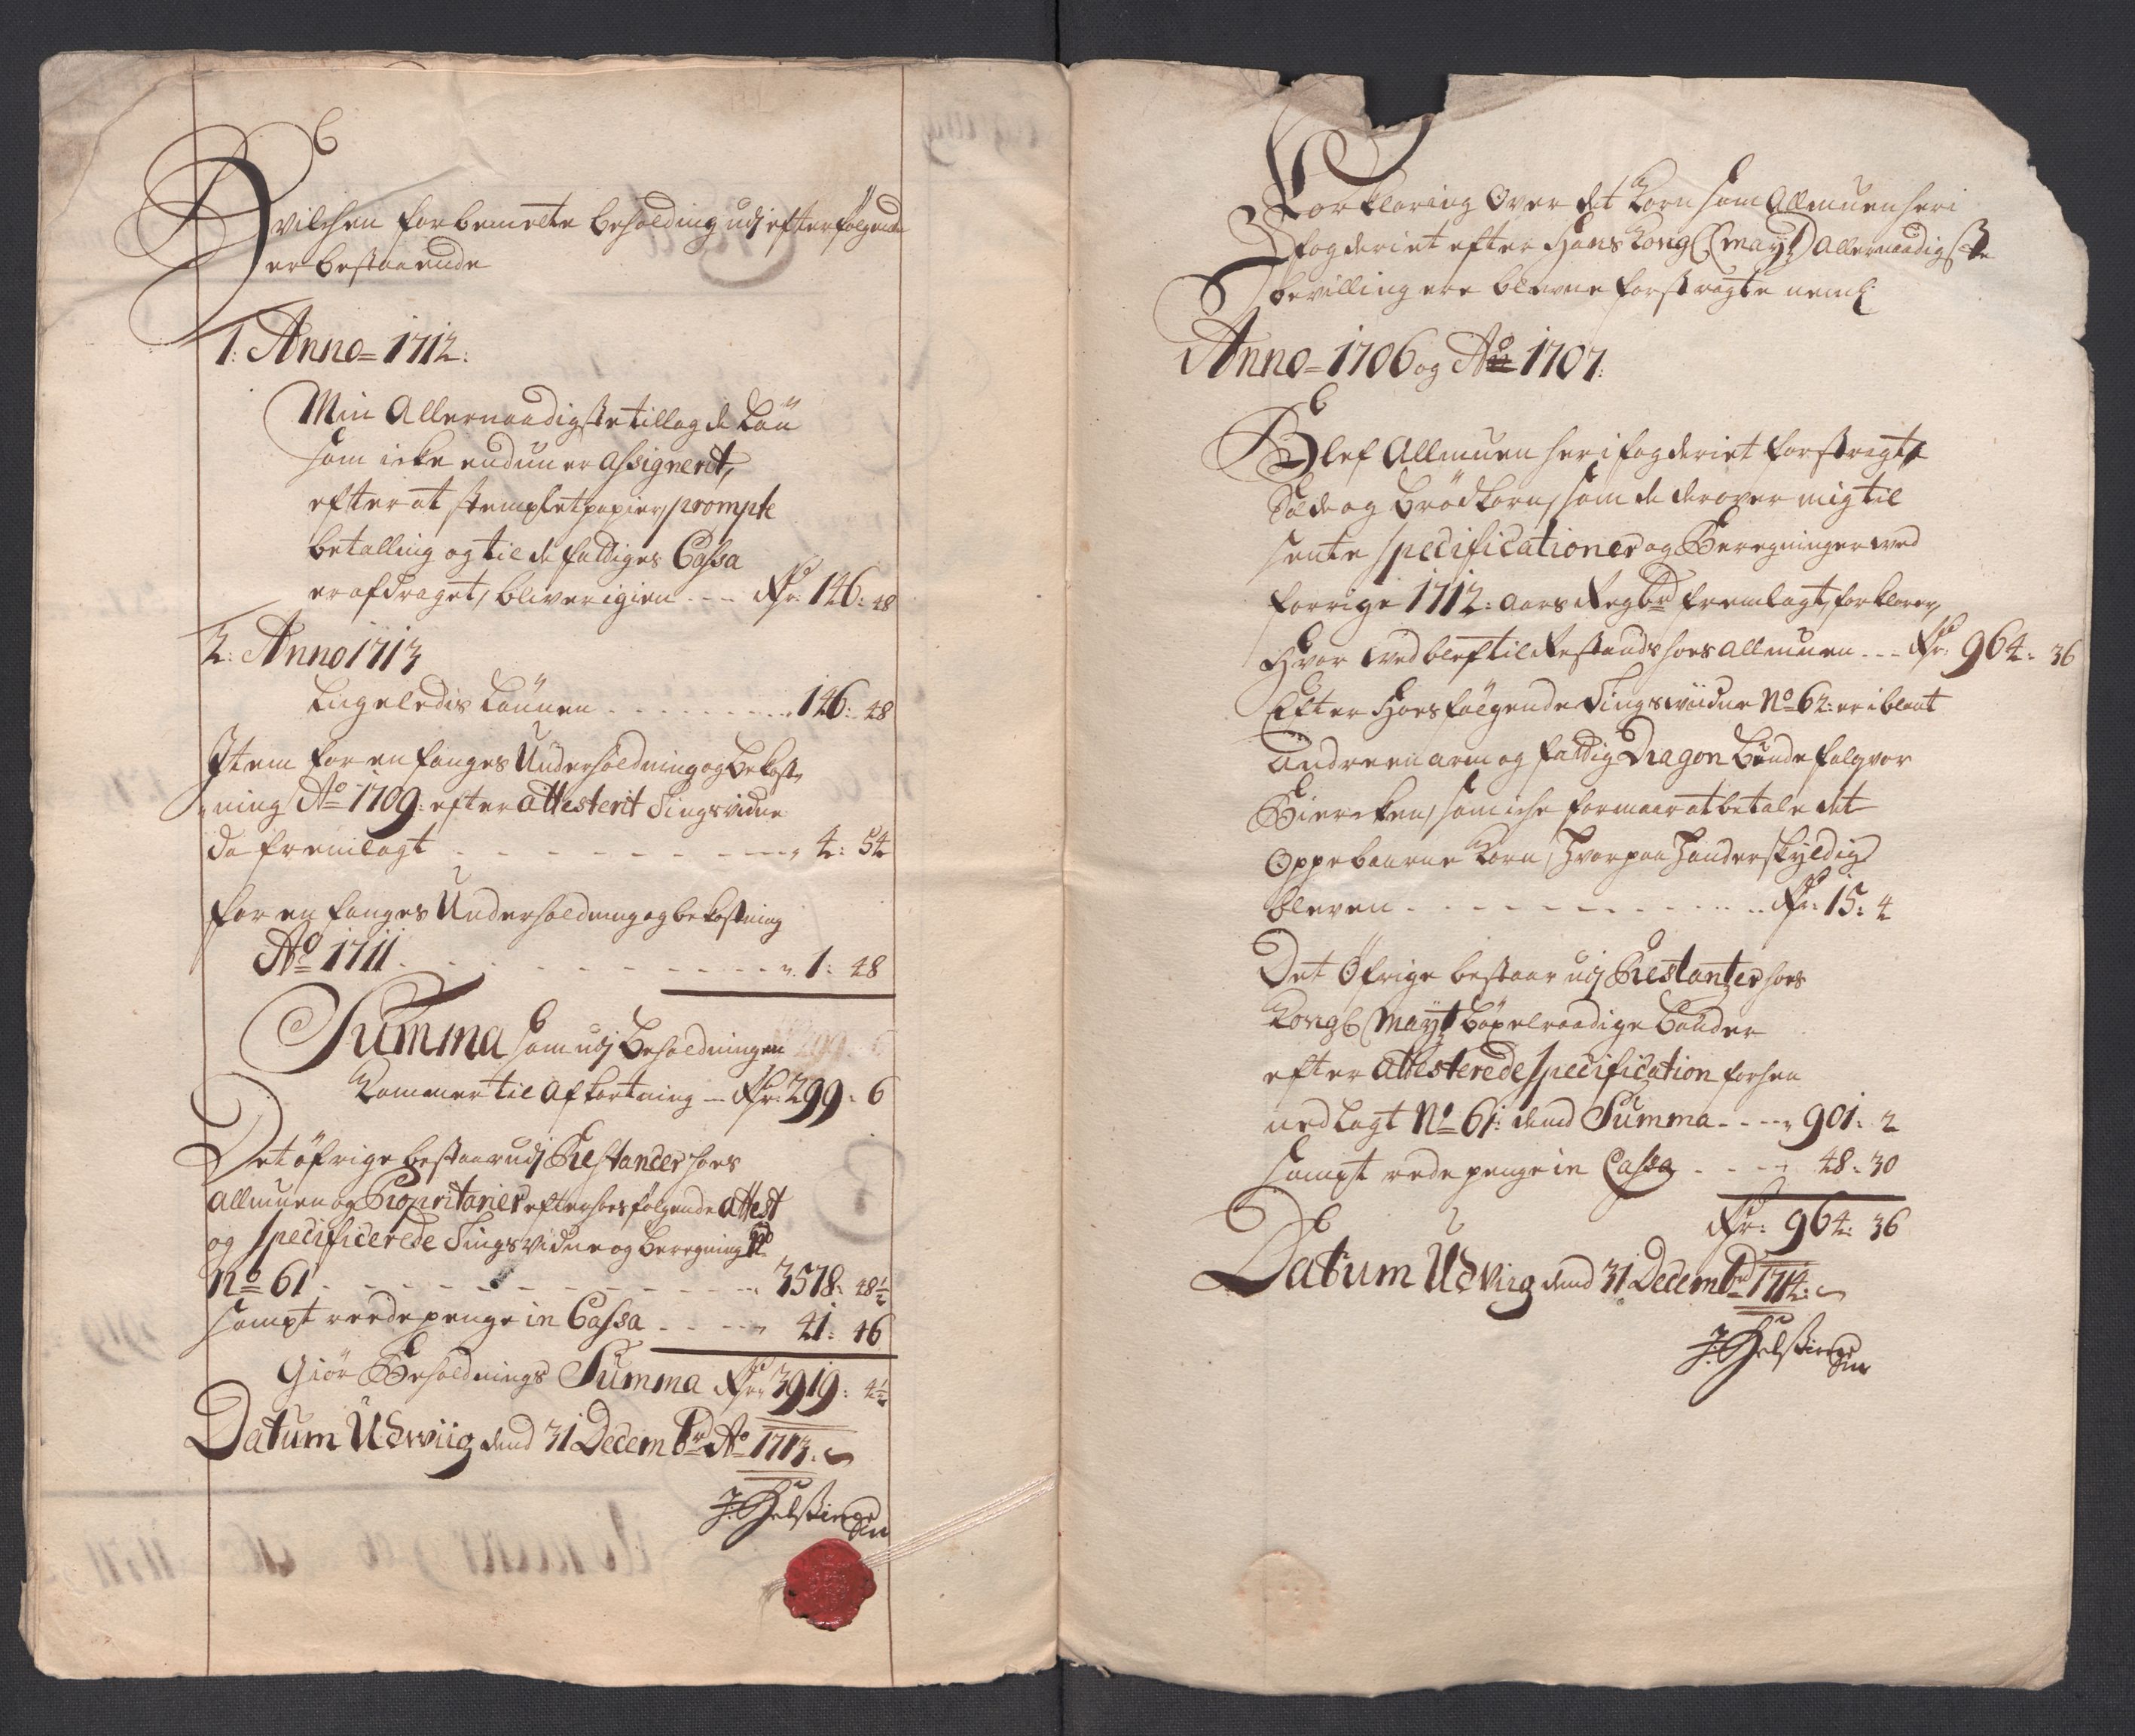 Hvilchen forbemelte beholding udj efterfølgende
er bestaaende
1: Anno = 1712:
Min Allernaadigste tillagde Løn
som icke endnu er assignerit,
efter at stemplet papier, prompte
betalling og til de fattiges Cassa
er afdraget, bliver igien --- Rdr: 146: 48
2: Anno 1713
Ligeledis Lønnen - - - - - - - - 146: 48
Item for en fanges Underholdning og bekost-
ning Ao 1709: efter attesterit Tingsvidne
da fremlagt - - - - - - - - - 4: 54
for en fanges Underholdning og bekostning
Ao 1711 - - - - - - - - - - 1: 48
Summa som udj beholdningen
Kommer til Afkortning -- Rdr: 299: 6
Det øfrige bestaar udj Restancer hoes
Allmuen og Propritarier efter hoesfølgende attest
og specificerede Tingsvidne og beregning
No 61 - - - - - - - - - - 3578: 48½
sampt reede penge in Cassa - - - - 41: 46
Giør Beholdnings Summa Rdr 3919: 4½
Datum Udwiig dend 31 Decembr Ao 1713.
J: Helsing
Forklaring Over det Korn som Allmuen her i
fogderiet efter Hans Kongl: Mayts Allernaadigste
bevilling ere blevne forstragte neml:
Anno = 1706 og Ao 1707:
Blef Allmuen her i fogderiet forstragt
Sæde og Brødkorn, som de derover mig til
sente specificationer og Beregninger ved
forrige 1712: aars Regnbr fremlagt, forklarer,
Hvor ved blef til Restands hoes allmuen --- Rdr: 964: 36
Efter Hoesfølgende Tingswidne No 62: er iblant
Andre en arm og fattig Dragon bunde
som iche formaar at betale det
Oppebaarne Korn, Hvorpaa Hand er skyldig
bleven - - - - - - - - - - Rdr: 15: 4
Det Øfrige bestaar udj Restantzer hoes
Kongl: Mayts bøxelraadige bønder
efter attesterede specification forhen
nedlagt No 61: dend Summa - - - - 901: 2
sampt rede penge in Cassa - - - - 48: 30
Rdr: 964: 36
Datum Udwiig dend 31 Decembr 1714:
J: Helsing